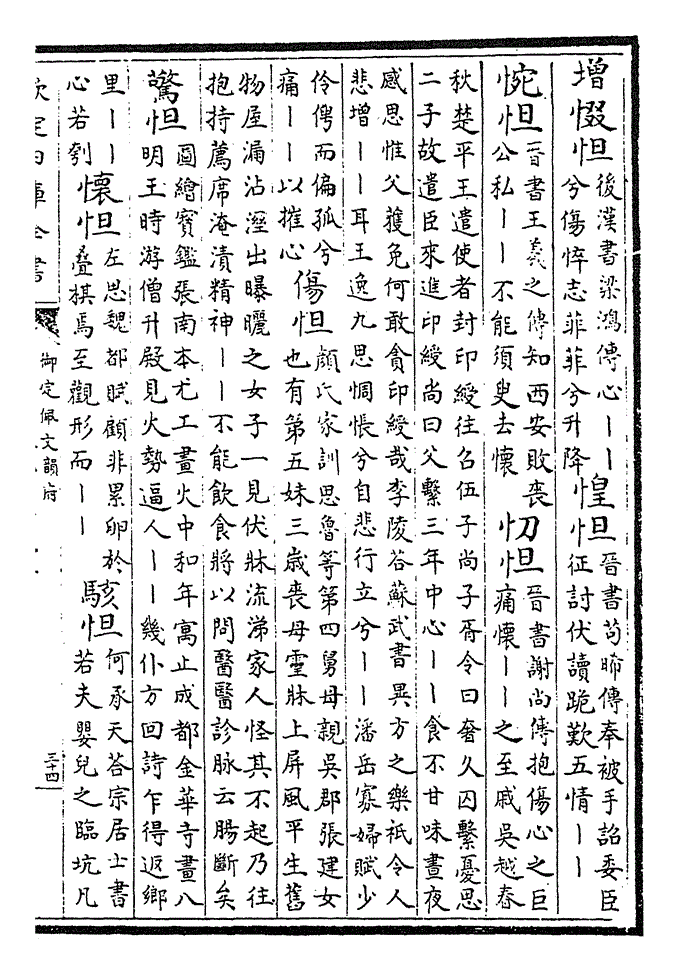 增惙怛
後漢書梁鴻傳心丨丨
兮傷悴志菲菲兮升降
惶怛
晉書荀晞傳奉被手詔委臣
征討伏讀跪歎五情丨丨
惋怛
晉書王羲之傳知西安敗喪
公私丨丨不能須臾去懷
忉怛
晉書謝尚傳抱傷心之巨
痛懷丨丨之至戚吳越春
秋楚平王遣使者封印綬往召伍子尚子胥令曰奢久囚繫憂思
二子故遣臣來進印綬尚曰父繫三年中心丨丨食不甘味晝夜
感思惟父獲免何敢貪印綬哉李陵答蘇武書異方之樂祇令人
悲增丨丨耳王逸九思惆悵兮自悲行立兮丨丨潘岳寡婦賦少
伶俜而偏孤兮
痛丨丨以摧心
傷怛
顏氏家訓思魯等第四舅母親吳郡張建女
也有第五妹三歲喪母靈牀上屏風平生舊
物屋漏沾溼出曝曬之女子一見伏牀流涕家人怪其不起乃往
抱持薦席淹漬精神丨丨不能飲食將以問醫醫診脉云腸斷矣
驚怛
圖繪寶鑑張南本尤工畫火中和年寓止成都金華寺畫八
明王時游僧升殿見火勢逼人丨丨幾仆方回詩乍得返鄉
里丨丨
心若刳
懷怛
左思魏都賦顧非累卵於
疊棋焉至觀形而丨丨
駭怛
何承天荅宗居士書
若夫嬰兒之臨坑凡
欽定四庫全書
御定佩文韻府
三十四